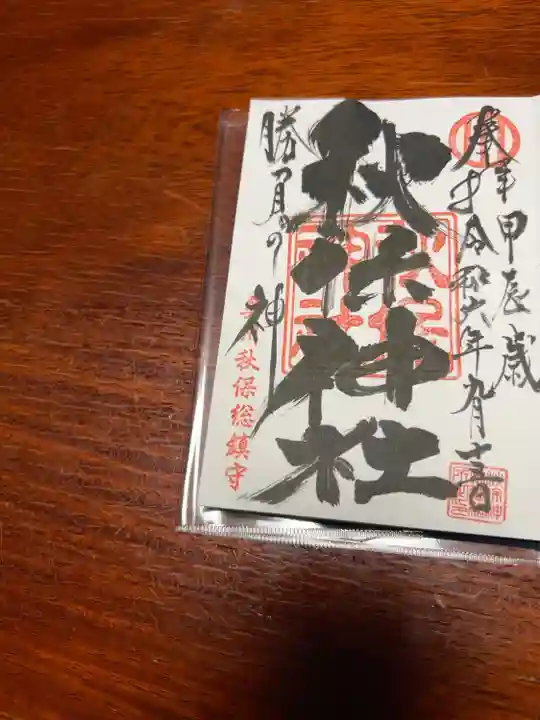 奉拝
甲辰歳
令和六年九月十三日
秋保神社
勝負の神
秋保総鎮守